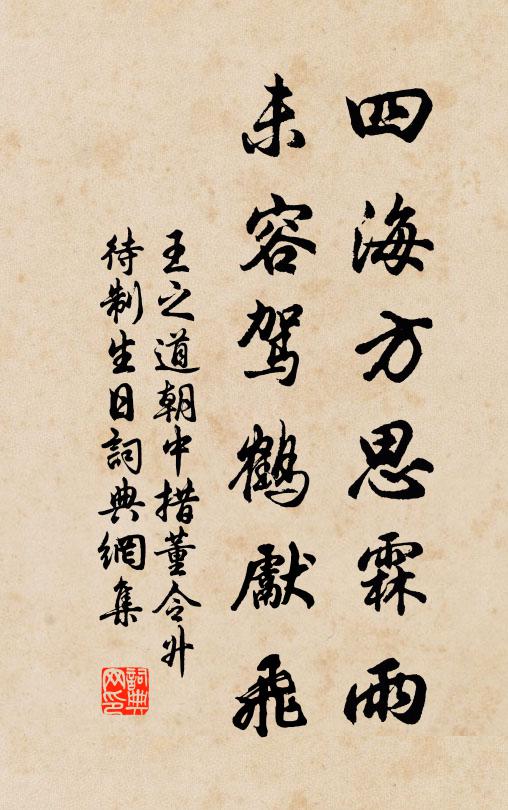 四海方思霖雨
未容駕鶴獻飛
王之道朝中措董令升
待制生日詞典網集
詞典网印